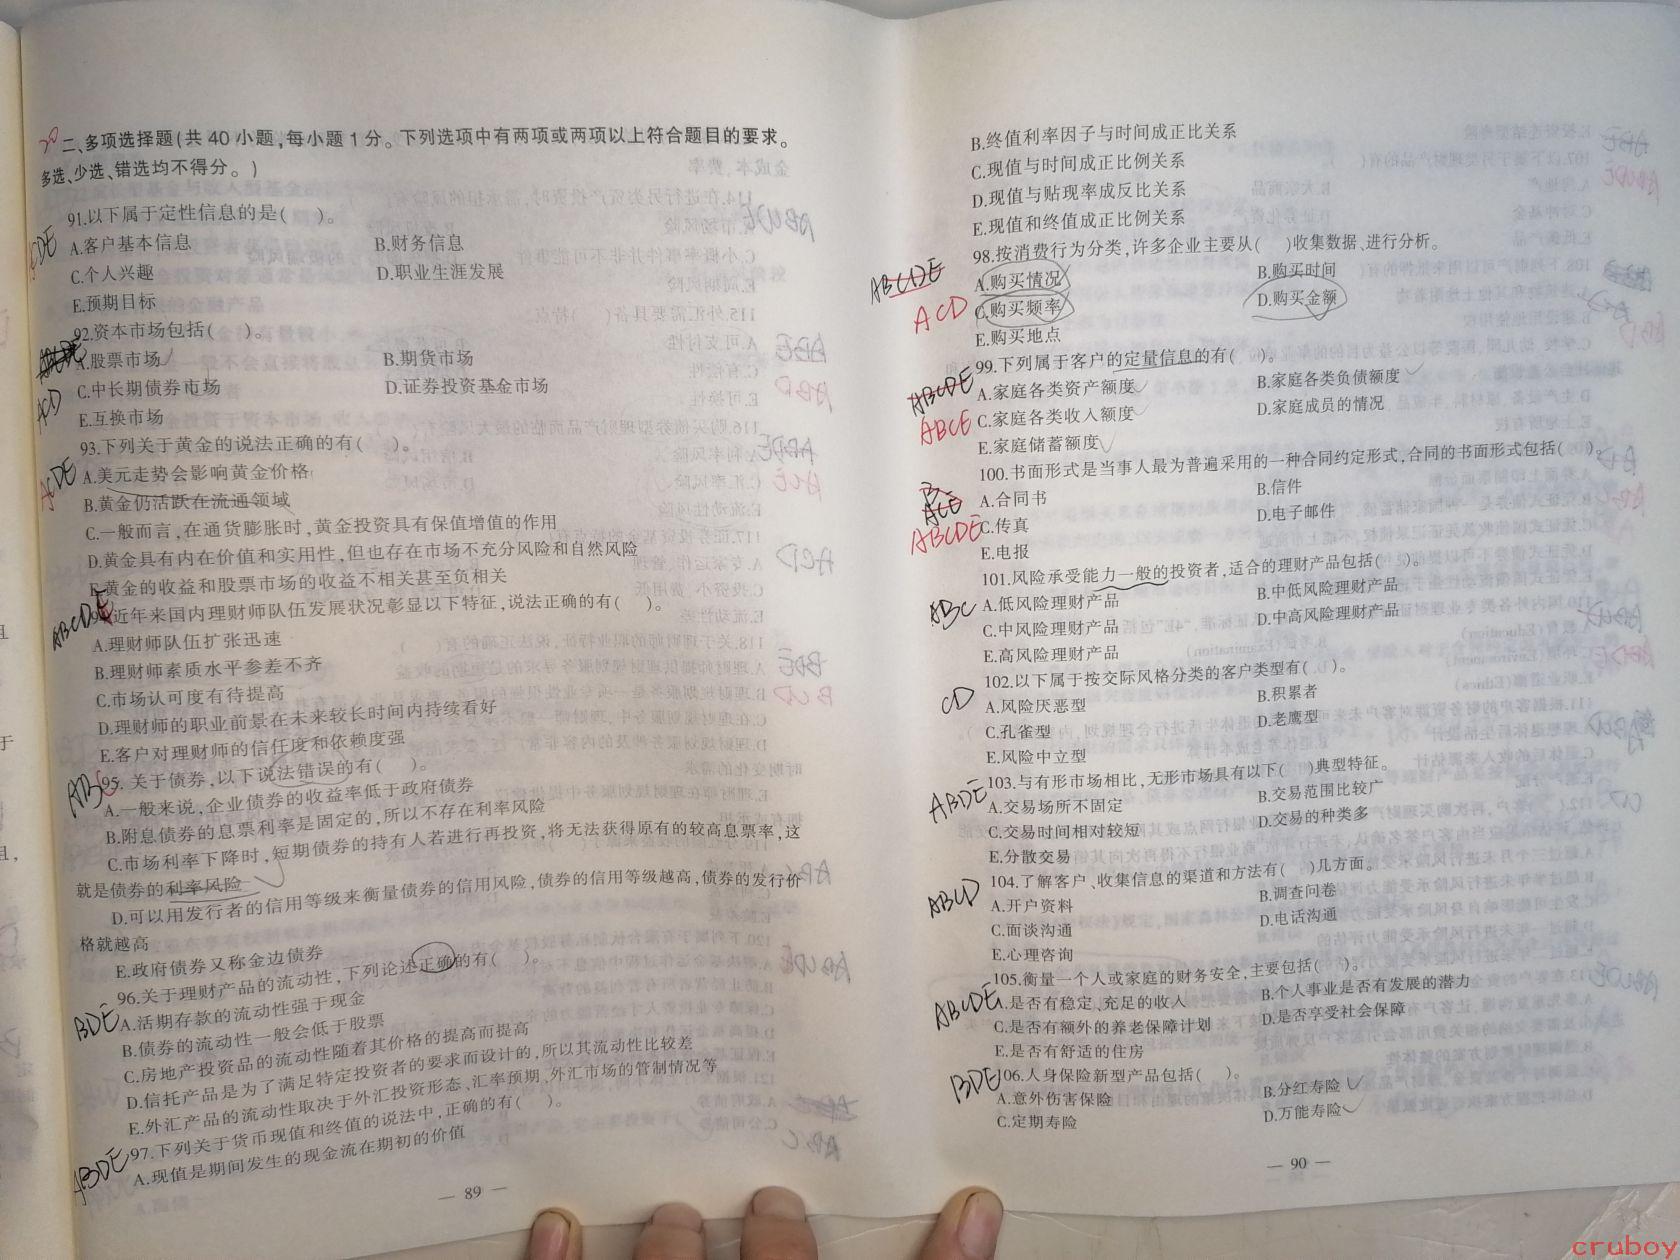 20
二、多项选择题(共 40 小题,每小题 1 分。下列选项中有两项或两项以上符合题目的要求。
多选、少选、错选均不得分。)
91.以下属于定性信息的是(    )。
ACDE
A.客户基本信息
B.财务信息
C.个人兴趣
D.职业生涯发展
E.预期目标
92.资本市场包括(    )。
A.股票市场
B.期货市场
ACD
C.中长期债券市场
D.证券投资基金市场
E.互换市场
93.下列关于黄金的说法正确的有(    )。
ACDE
A.美元走势会影响黄金价格
B.黄金仍活跃在流通领域
C.一般而言,在通货膨胀时,黄金投资具有保值增值的作用
D.黄金具有内在价值和实用性,但也存在市场不充分风险和自然风险
E.黄金的收益和股票市场的收益不相关甚至负相关
ABCDE
94.近年来国内理财师队伍发展状况彰显以下特征,说法正确的有(    )。
A.理财师队伍扩张迅速
B.理财师素质水平参差不齐
C.市场认可度有待提高
D.理财师的职业前景在未来较长时间内持续看好
E.客户对理财师的信任度和依赖度强
ABC
95. 关于债券,以下说法错误的有(    )。
A.一般来说,企业债券的收益率低于政府债券
B.附息债券的息票利率是固定的,所以不存在利率风险
C.市场利率下降时,短期债券的持有人若进行再投资,将无法获得原有的较高息票率,这
就是债券的利率风险
D.可以用发行者的信用等级来衡量债券的信用风险,债券的信用等级越高,债券的发行价
格就越高
E.政府债券又称金边债券
96.关于理财产品的流动性,下列论述正确的有(    )。
BDE
A.活期存款的流动性强于现金
B.债券的流动性一般会低于股票
C.房地产投资品的流动性随着其价格的提高而提高
D.信托产品是为了满足特定投资者的要求而设计的,所以其流动性比较差
E.外汇产品的流动性取决于外汇投资形态、汇率预期、外汇市场的管制情况等
ABDE
97.下列关于货币现值和终值的说法中,正确的有(    )。
A.现值是期间发生的现金流在期初的价值
— 89 —
B.终值利率因子与时间成正比关系
C.现值与时间成正比例关系
D.现值与贴现率成反比关系
E.现值和终值成正比例关系
98.按消费行为分类,许多企业主要从(    )收集数据、进行分析。
ABCDE
A.购买情况
B.购买时间
ACD
C.购买频率
D.购买金额
E.购买地点
99.下列属于客户的定量信息的有(    )。
ABCDE
A.家庭各类资产额度
B.家庭各类负债额度
ABCE
C.家庭各类收入额度
D.家庭成员的情况
E.家庭储蓄额度
100.书面形式是当事人最为普遍采用的一种合同约定形式,合同的书面形式包括(    )。
B
ACE
A.合同书
B.信件
ABCDE
C.传真
D.电子邮件
E.电报
101.风险承受能力一般的投资者,适合的理财产品包括(    )。
ABC
A.低风险理财产品
B.中低风险理财产品
C.中风险理财产品
D.中高风险理财产品
E.高风险理财产品
102.以下属于按交际风格分类的客户类型有(    )。
CD
A.风险厌恶型
B.积累者
C.孔雀型
D.老鹰型
E.风险中立型
103.与有形市场相比,无形市场具有以下(    )典型特征。
ABDE
A.交易场所不固定
B.交易范围比较广
C.交易时间相对较短
D.交易的种类多
E.分散交易
104.了解客户、收集信息的渠道和方法有(    )几方面。
ABCD
A.开户资料
B.调查问卷
C.面谈沟通
D.电话沟通
E.心理咨询
105.衡量一个人或家庭的财务安全,主要包括(    )。
ABCDE
A.是否有稳定、充足的收入
B.个人事业是否有发展的潜力
C.是否有额外的养老保障计划
D.是否享受社会保障
E.是否有舒适的住房
BDE
106.人身保险新型产品包括(    )。
A.意外伤害保险
B.分红寿险
C.定期寿险
D.万能寿险
— 90 —
cruboy